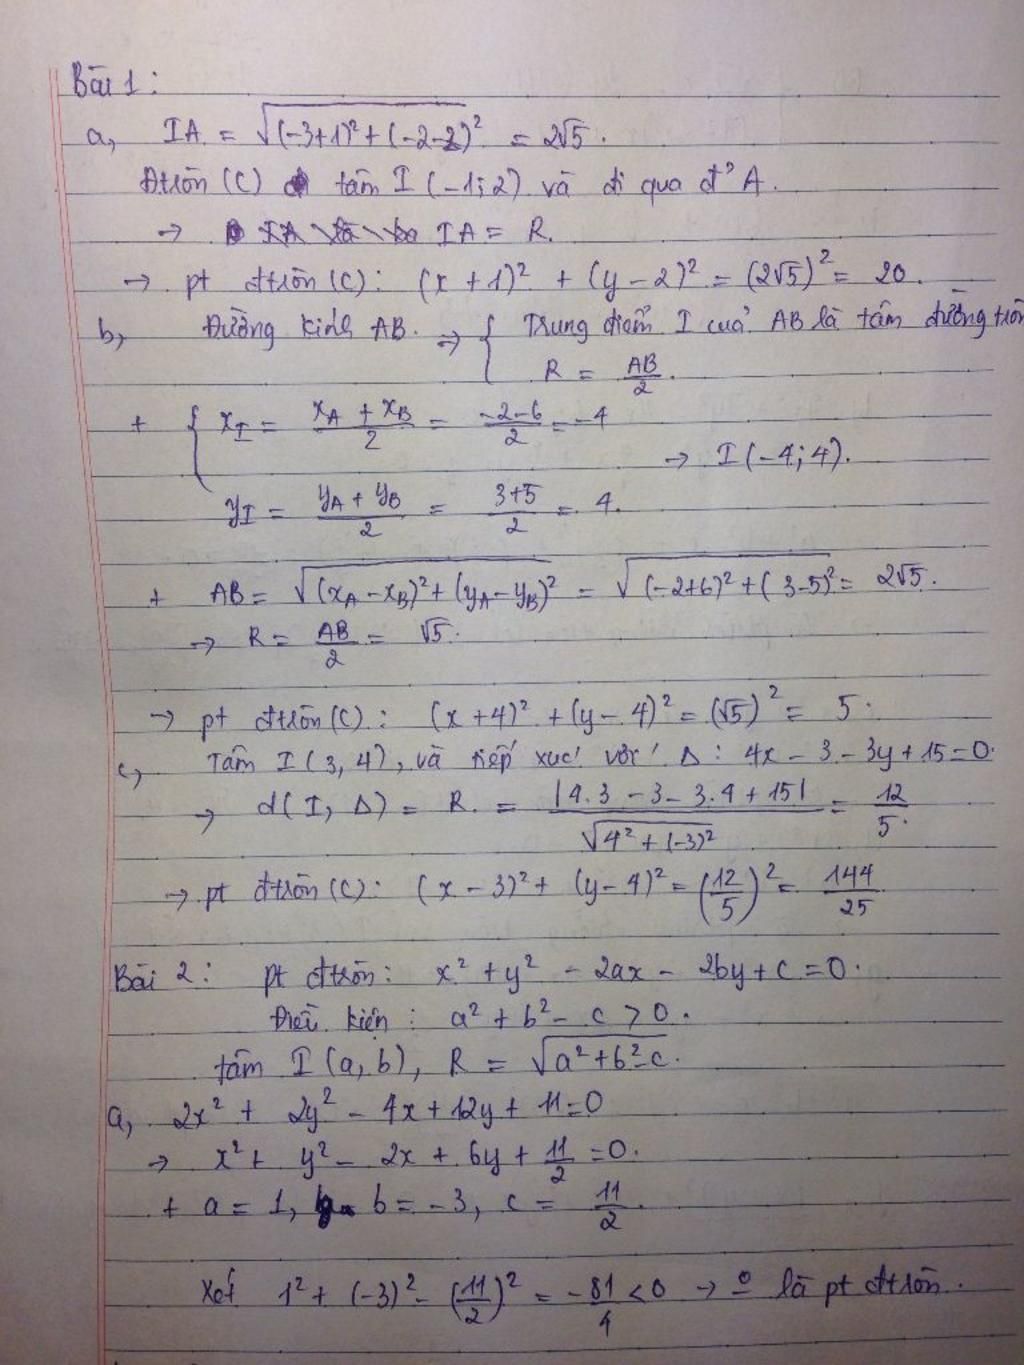 Bài 1:
a, IA = √((-3+1)² + (-2-2)²) = 2√5.
Đtròn (C) tâm I (-1;2) và đi qua đ' A.
→ IA = R.
→ pt đtròn (C): (x + 1)² + (y - 2)² = (2√5)² = 20.
b, Đường kính AB. ⇒ { Trung điểm I của AB là tâm đường tròn
R = AB/2.
+ { x_I = (x_A + x_B)/2 = (-2-6)/2 = -4
→ I (-4; 4).
y_I = (y_A + y_B)/2 = (3+5)/2 = 4.
+ AB = √((x_A - x_B)² + (y_A - y_B)²) = √((-2+6)² + (3-5)²) = 2√5.
→ R = AB/2 = √5.
→ pt đtròn (C): (x + 4)² + (y - 4)² = (√5)² = 5.
c, Tâm I (3, 4), và tiếp xúc với Δ: 4x - 3 - 3y + 15 = 0.
→ d( I, Δ) = R. = |4.3 - 3 - 3.4 + 15| / √(4² + (-3)²) = 12/5.
→ pt đtròn (C): (x - 3)² + (y - 4)² = (12/5)² = 144/25
Bài 2: pt đtròn: x² + y² - 2ax - 2by + c = 0.
Điều kiện: a² + b² - c > 0.
tâm I (a, b), R = √(a² + b² - c).
a, 2x² + 2y² - 4x + 12y + 11 = 0
→ x² + y² - 2x + 6y + 11/2 = 0.
+ a = 1, b = -3, c = 11/2.
Xét 1² + (-3)² - (11/2)² = -81/4 < 0 → là pt đtròn.